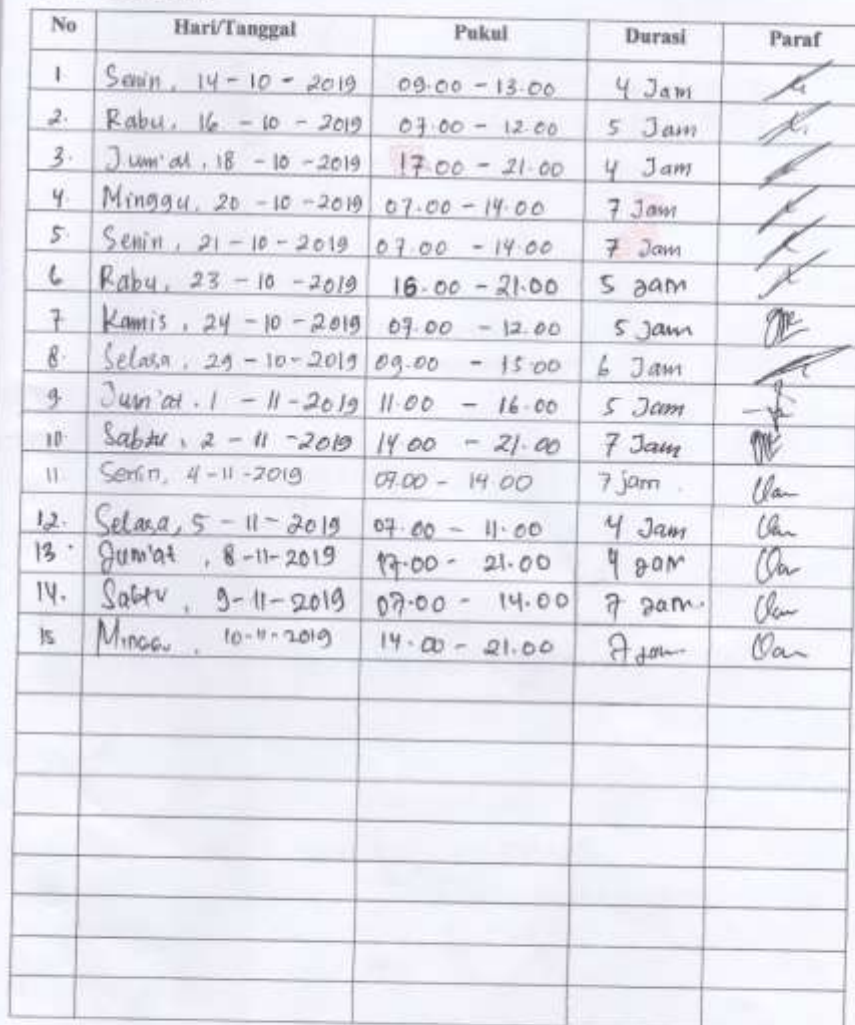 No Hari/Tanggal Pukul Durasi Paraf
1. Senin, 14 - 10 - 2019 09.00 - 13.00 4 Jam
2. Rabu, 16 - 10 - 2019 07.00 - 12.00 5 Jam
3. Jum'at, 18 - 10 - 2019 17.00 - 21.00 4 Jam
4. Minggu, 20 - 10 - 2019 07.00 - 14.00 7 Jam
5. Senin, 21 - 10 - 2019 07.00 - 14.00 7 Jam
6 Rabu, 23 - 10 - 2019 16.00 - 21.00 5 Jam
7 Kamis, 24 - 10 - 2019 07.00 - 12.00 5 Jam
8. Selasa, 29 - 10 - 2019 09.00 - 15.00 6 Jam
9. Jum'at. 1 - 11 - 2019 11.00 - 16.00 5 Jam
10 Sabtu, 2 - 11 - 2019 14.00 - 21.00 7 Jam
11. Senin, 4 - 11 - 2019 07.00 - 14.00 7 jam
12. Selasa, 5 - 11 - 2019 07.00 - 11.00 4 Jam
13. Jum'at, 8 - 11 - 2019 17.00 - 21.00 4 Jam
14. Sabtu, 9 - 11 - 2019 07.00 - 14.00 7 Jam.
15 Minggu, 10 - 11 - 2019 14.00 - 21.00 7 Jam